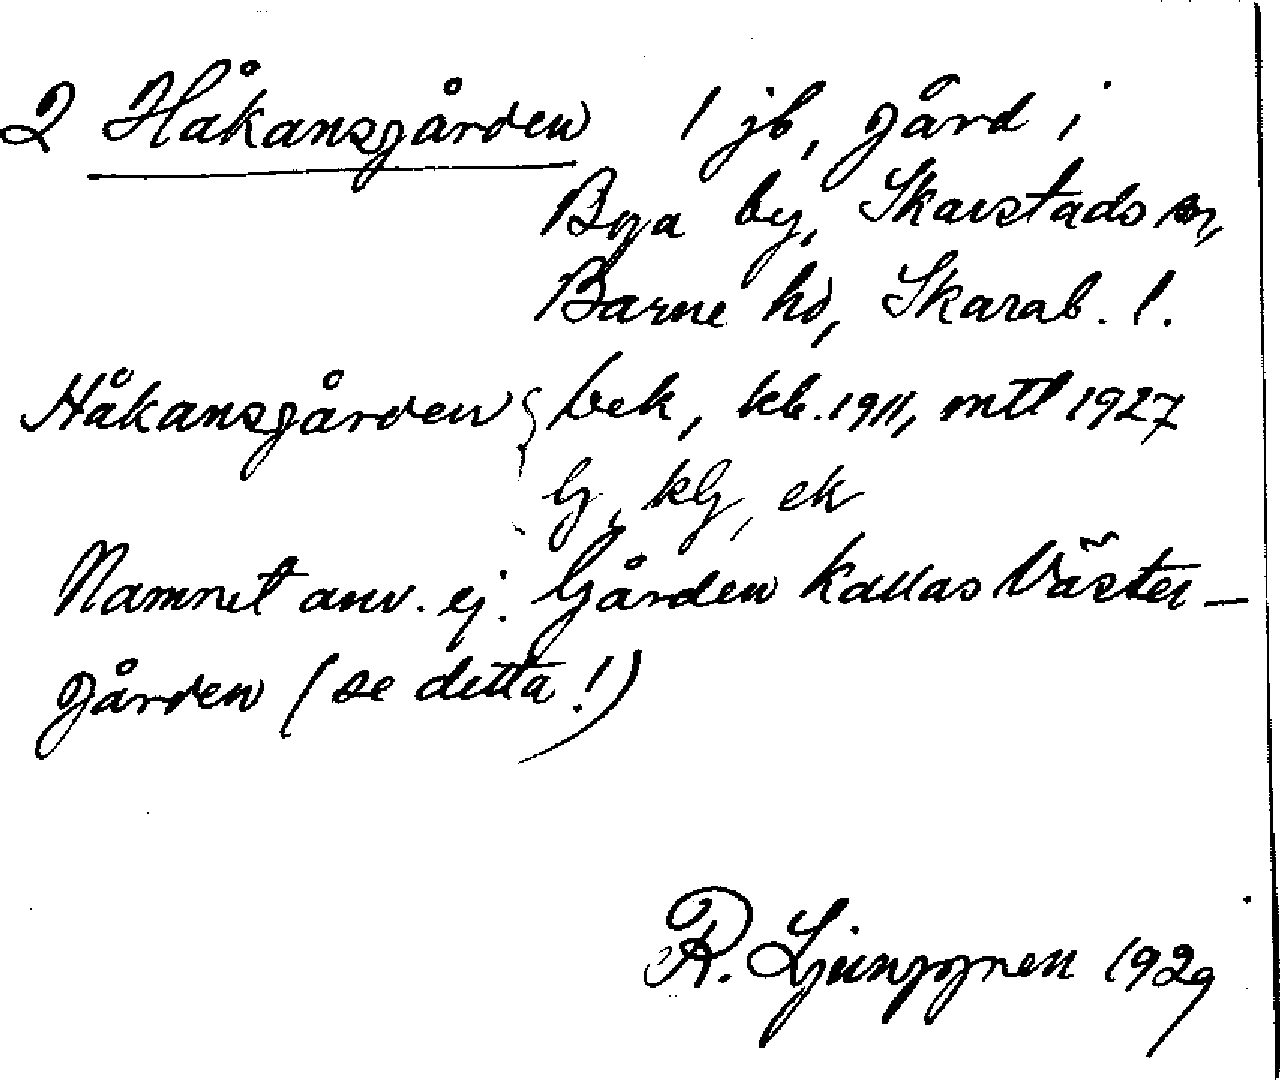 2 Håkansgården 1 jb, gård i
Bga by, Skarstads sn,
Barne hd, Skarab. l.
Håkansgården { bek, kb. 1911, mtl 1927
G, kG, ek
Namnet anv. ej. Gården kallas Väster-
gården (se detta!)
R. Ljunggren 1929